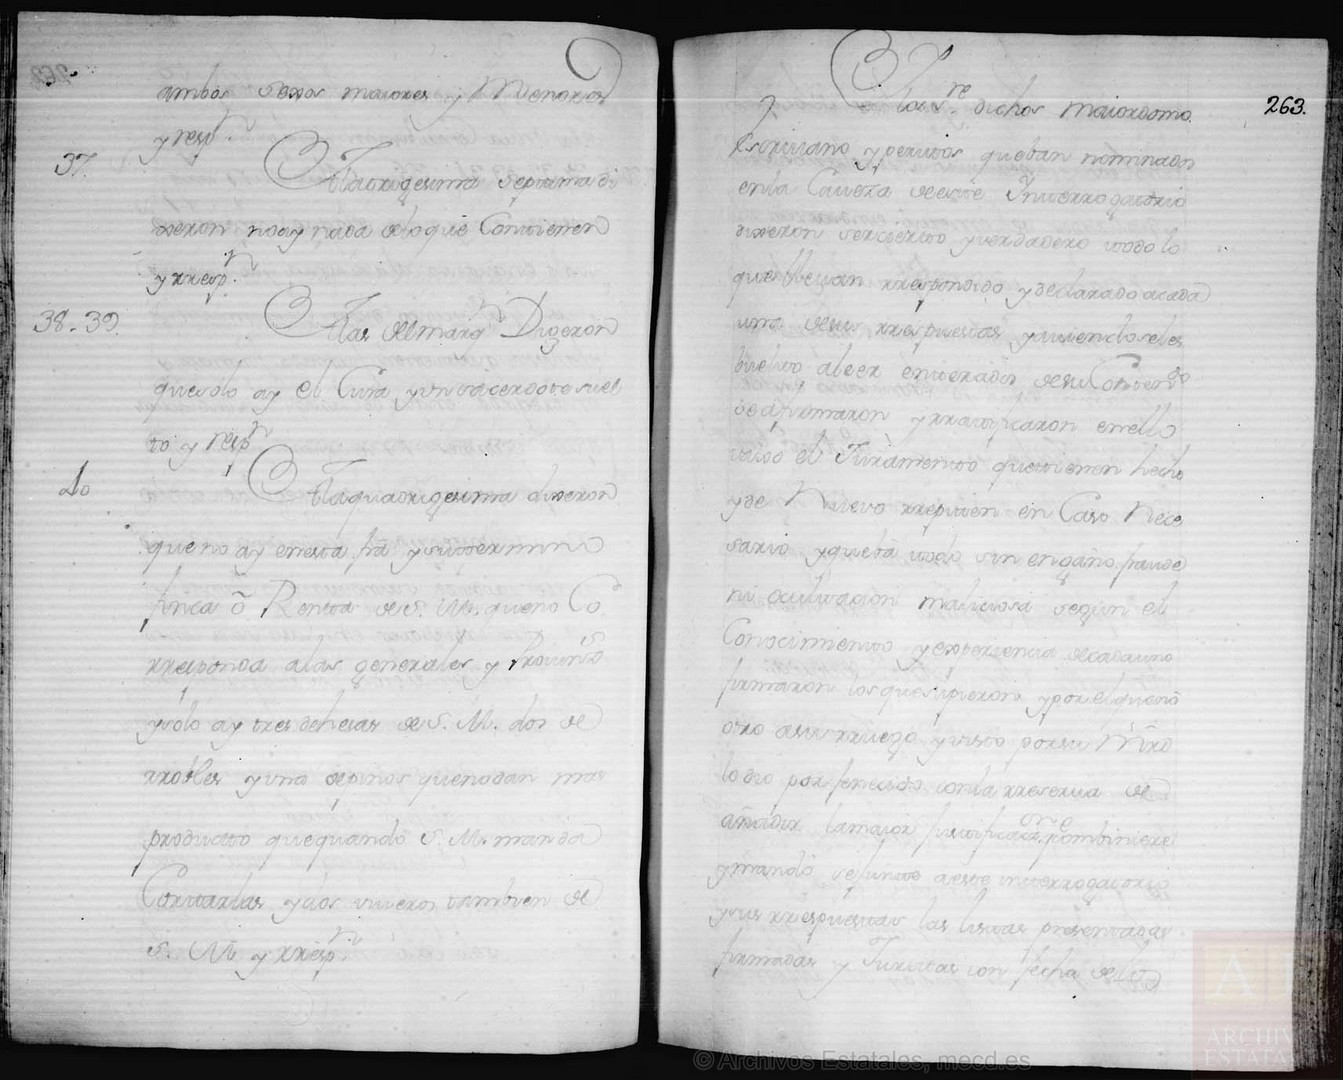 ambos sexos maiores y Menores
y resp.n
37. A la trigesima septima di
xeron no ay nada de lo que Contienen
y rresp.n
38-39. A las del marg.n Digeron
que solo ay el Cura y un sacerdote suel
to y resp.n
40 A la quadrigesima dixeron
que no ay en esta fha y su termino
finca ō Renta de S. M. que no Co
rresponda a las generales y Provinz.s
y solo ay tres dehesas de S. M. dos de
rrobles y una de pinos que no dan mas
producto que quando S. M. manda
Cortarlas y dos viveros tambien de
S. M. y rresp.n
263.
Y los s.re dichos Maiordomo
Escrivano y peritos que estan nominados
en la Caveza de este Interrogatorio
dixeron ser cierto y verdadero todo lo
que llevan rrespondido y declarado a cada
una de sus rrespuestas y haviendoseles
buelto a leer enterados de su Conten.do
se afirmaron y rratificaron en ello
vajo el Juramento que tienen hecho
y de Nuevo rrepiten en Caso Nece
sario y que está todo sin engaño, fraude
ni ocultacion maliciosa segun el
Conocimiento y experiencia de cada uno
firmaron los que supieron y por el que nō
otro a su rruego y visto por su Mrd
lo dio por fenecido con la rreserva de
añadir la maior justificaz.one combiniere
y mandó se junte a este interrogatorio
y sus rrespuestas las listas presentadas
firmadas y Juradas con fecha de
© Archivos Estatales, mecd.es
ARCHIV
ESTATA